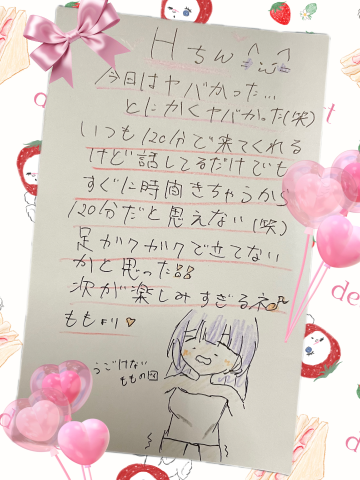 Hちゃん
今日はヤバかった…
とにかくヤバかった(笑)
いつも120分で来てくれる
けど話してるだけでも
すぐに時間きちゃうから
120分だと思えない(笑)
足がガクガクで立てない
かと思った
次が楽しみすぎるネ
ももより
うごけない
ももの図
de